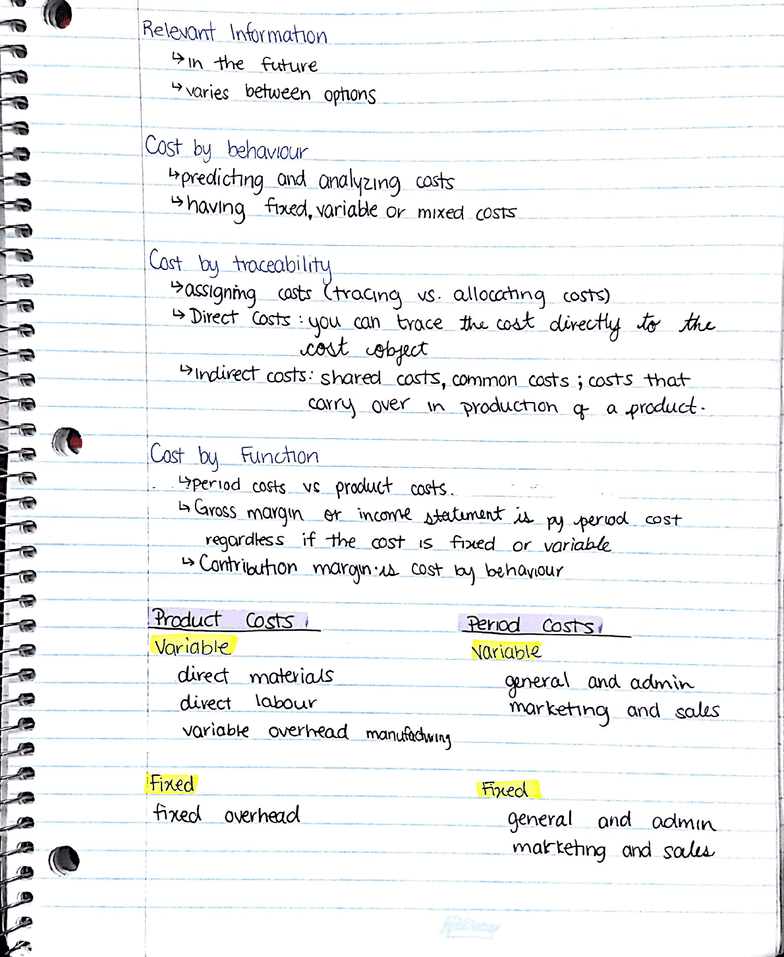 Relevant Information
↳in the future
↳varies between options
Cost by behaviour
↳predicting and analyzing costs
↳having fixed, variable or mixed costs
Cost by traceability
↳assigning costs (tracing vs. allocating costs)
↳Direct Costs: you can trace the cost directly to the
cost object
↳Indirect costs: shared costs, common costs; costs that
carry over in production of a product.
Cost by Function
↳period costs vs product costs.
↳Gross margin or income statement is py period cost
regardless if the cost is fixed or variable
↳Contribution margin is cost by behaviour
Product Costs
Variable
direct materials
direct labour
variable overhead manufacturing
Fixed
fixed overhead
Period Costs
Variable
general and admin
marketing and sales
Fixed
general and admin
marketing and sales